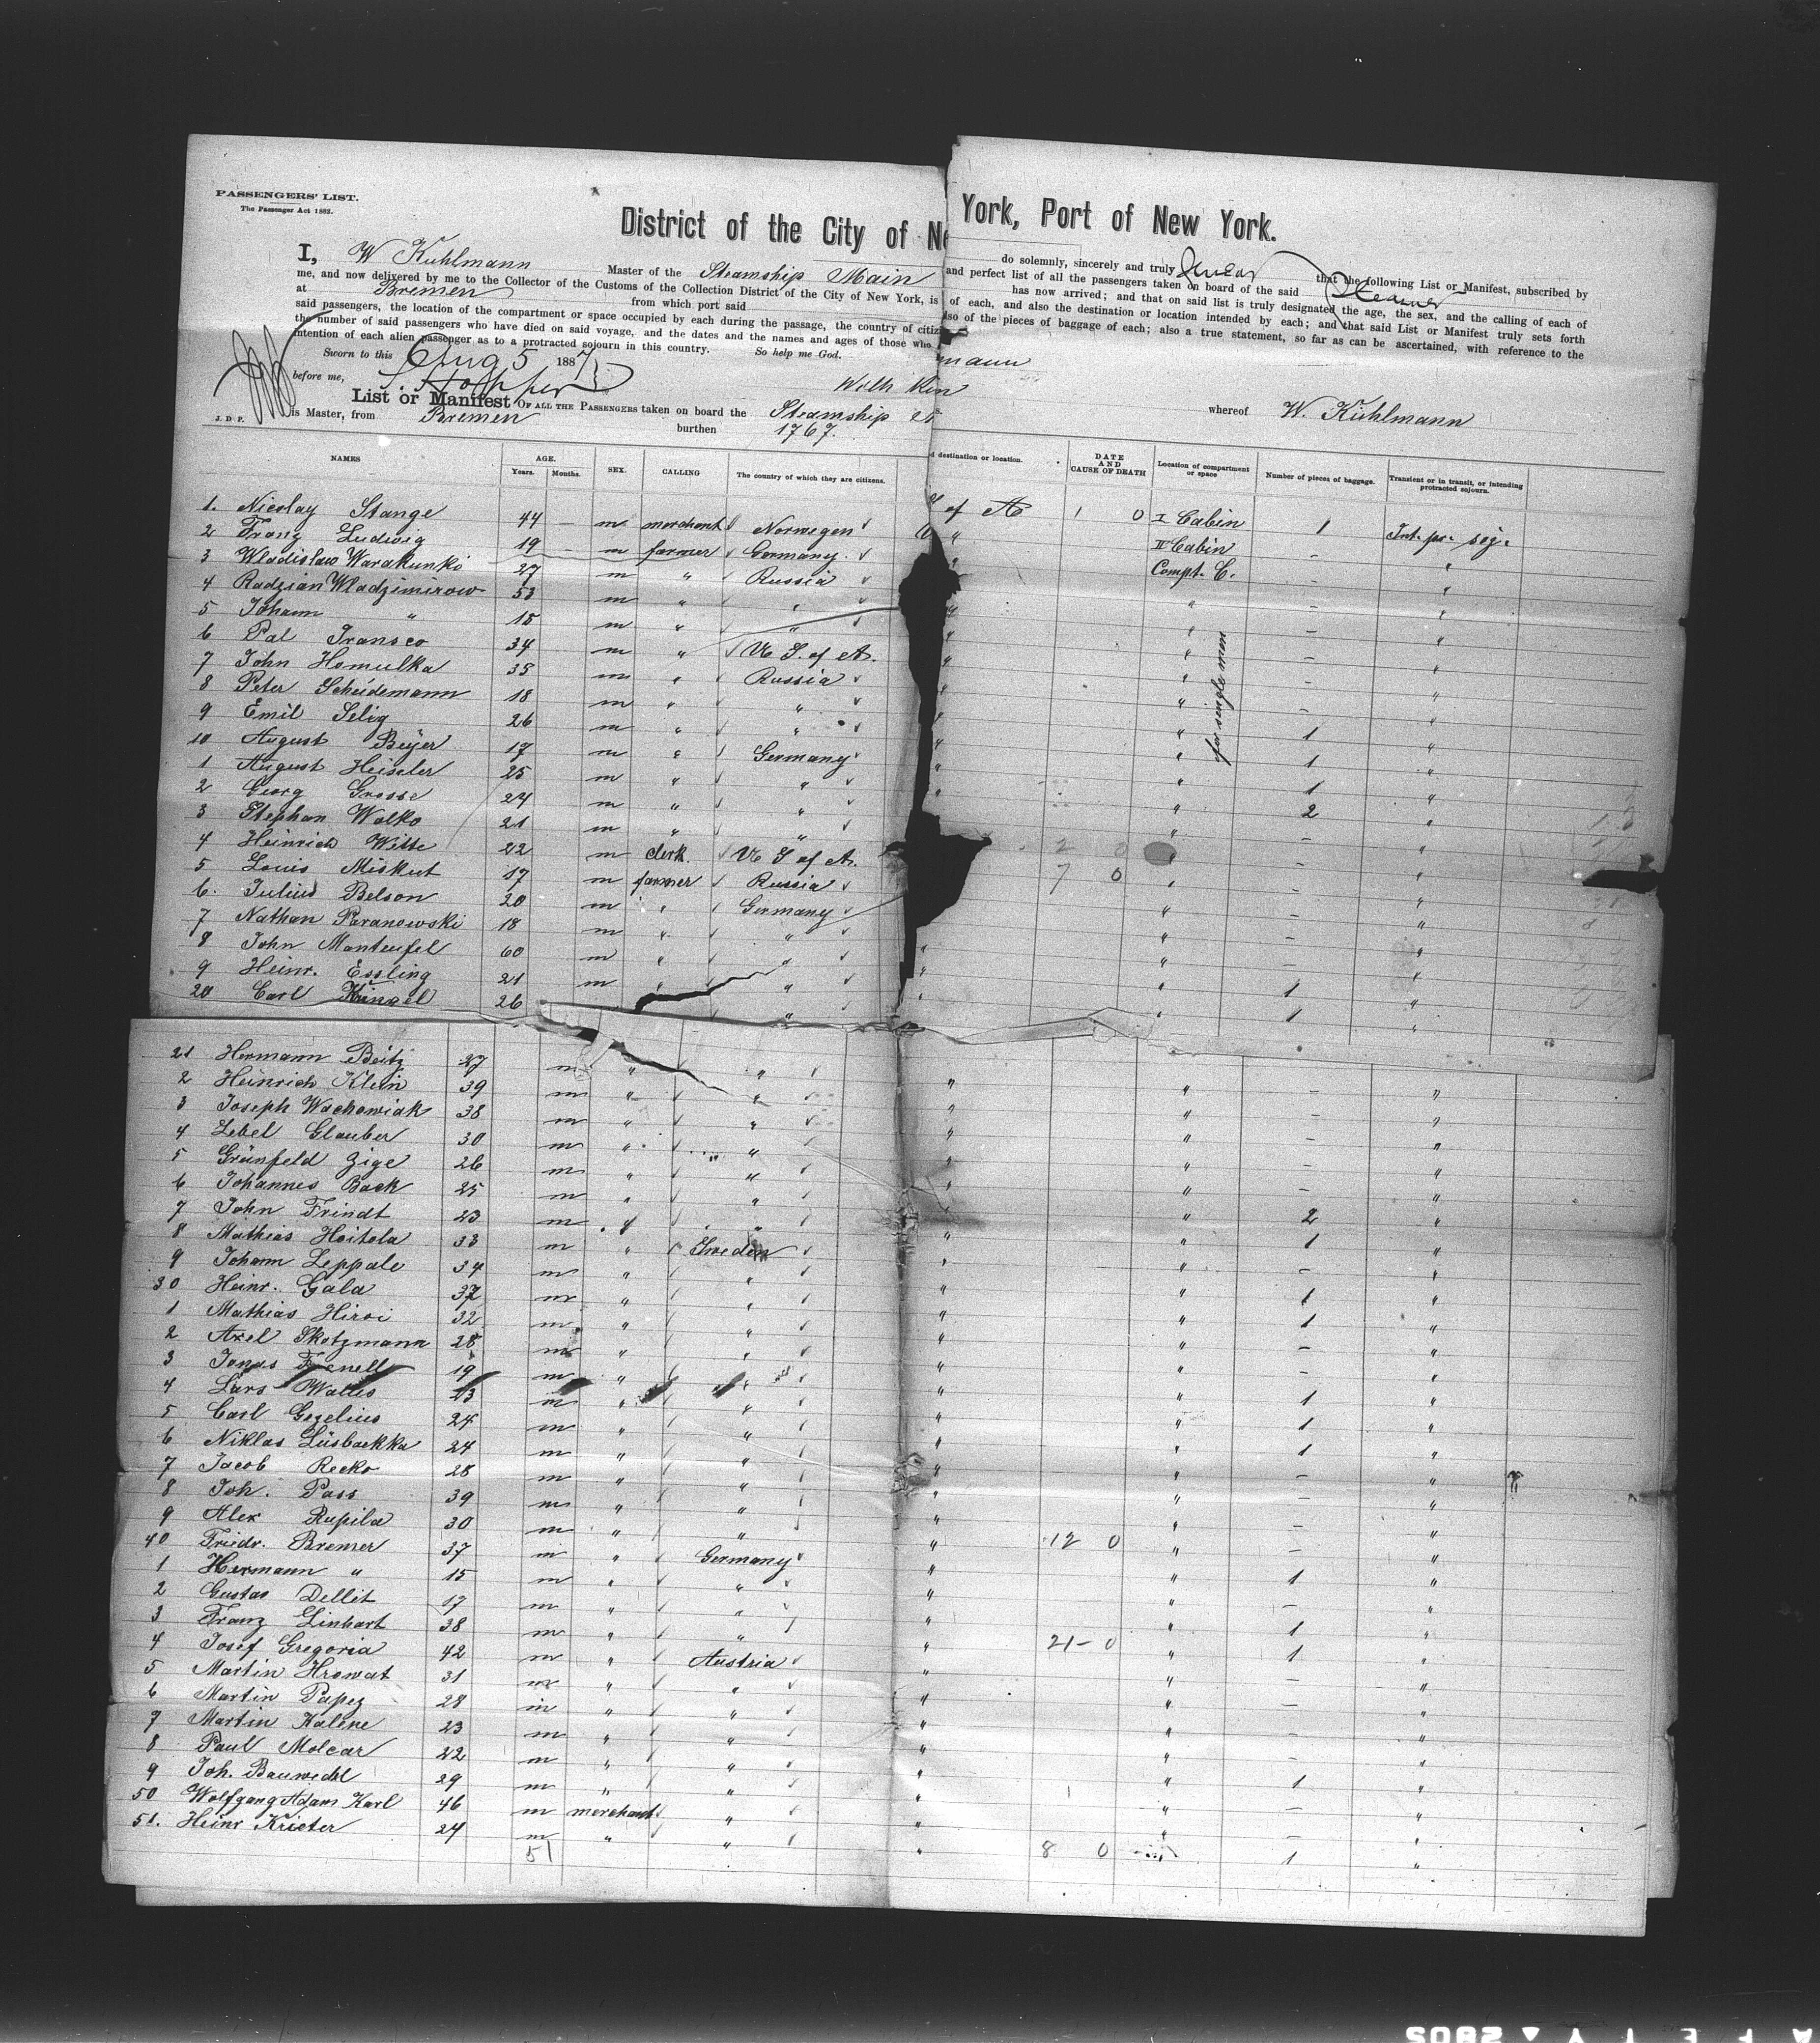 PASSENGERS' LIST.
The Passenger Act 1882.
District of the City of Ne York, Port of New York.
I, W Kuhlmann Master of the Steamship Main do solemnly, sincerely and truly Swear that the following List or Manifest, subscribed by
me, and now delivered by me to the Collector of the Customs of the Collection District of the City of New York, is and perfect list of all the passengers taken on board of the said Steamer
at Bremen from which port said has now arrived; and that on said list is truly designated the age, the sex, and the calling of each of
said passengers, the location of the compartment or space occupied by each during the passage, the country of citiz of each, and also the destination or location intended by each; and that said List or Manifest truly sets forth
the number of said passengers who have died on said voyage, and the dates and the names and ages of those who lso of the pieces of baggage of each; also a true statement, so far as can be ascertained, with reference to the
intention of each alien passenger as to a protracted sojourn in this country. So help me God.
Sworn to this Aug 5 1887 mann
before me, Wilh
List or Manifest OF ALL THE PASSENGERS taken on board the Steamship whereof W. Kuhlmann
J. D. P. is Master, from Bremen burthen 1767.
NAMES AGE. Years. Months. SEX. CALLING The country of which they are citizens. d destination or location. DATE AND CAUSE OF DEATH Location of compartment or space Number of pieces of baggage. Transient or in transit, or intending protracted sojourn.
1. Nicolay Stange 44 — m merchant Norwegen of A 1 0 I Cabin 1 Int. pr. soj.
2 Franz Ludwig 19 — m farmer Germany " II Cabin – "
3 Wladislaw Warakunki 27 m " Russia " Compt. C. – "
4 Radzian Wladzimirow 53 m " " " " – "
5 Johann " 18 m " " " " – "
6 Pal Transco 34 m " U S. of A. " " – "
7 John Homulka 35 m " Russia " " – "
8 Peter Scheidemann 18 m " " " " – "
9 Emil Selig 26 m " " " " 1 "
for single men
10 August Beyer 17 m " Germany " " 1 "
1 August Heiseler 25 m " " " " 1 "
2 Georg Grosse 24 m " " " 2 "
3 Stephan Walko 21 m " " " – "
4 Heinrich Witte 22 m clerk. U S of A. 2 0 " – "
5 Louis Miskut 17 m farmer Russia 7 0 " – "
6. Julius Belson 20 m " Germany " – "
7 Nathan Paranowski 18 m " " " – "
8 John Manteufel 60 m " " " " – "
9 Heinr. Essling 21 m " " " " 1 "
20 Carl Kinzel 26 " " " 1 "
21 Hermann Beitz 27 m " " " " – "
2 Heinrich Klein 39 m " " " " – "
3 Joseph Wachowiak 38 m " " " " – "
4 Lebel Glauber 30 m " " " " – "
5 Grünfeld Zige 26 m " " " " – "
6 Johannes Back 25 m " " " " 2 "
7 John Frindt 23 m " " " " 1 "
8 Mathias Hoitola 33 m " Sweden " " – "
9 Johann Leppale 34 m " " " " 1 "
30 Heinr. Gala 37 m " " " " 1 "
1 Mathias Hiroi 32 m " " " " – "
2 Axel Skotzmann 28 m " " " " – "
3 Jonas Fenell 19 m " " " " 1 "
4 Lars Wallis 23 m " " " " 1 "
5 Carl Gezelius 24 m " " " " 1 "
6 Niklas Lüsbackka 24 m " " " " – "
7 Jacob Recko 28 m " " " " – "
8 Joh. Pass 39 m " " " " – "
9 Alex Rupila 30 m " " " 12 0 " – "
40 Friedr. Bremer 37 m " Germany " " 1 "
1 Hermann " 15 m " " " " – "
2 Gustav Dellit 17 m " " " " 1 "
3 Franz Linhart 38 m " " " 21 – 0 " 1 "
4 Josef Gregoria 42 m " Austria " " – "
5 Martin Hrowat 31 m " " " " – "
6 Martin Papez 28 m " " " " – "
7 Martin Kalene 23 m " " " " – "
8 Paul Molcar 22 m " " " " 1 "
9 Joh. Bauwedel 29 m " " " " – "
50 Wolfgang Adam Karl 46 m merchant " " " – "
51. Heinr Krieter 24 m " " " 8 0 1 "
51